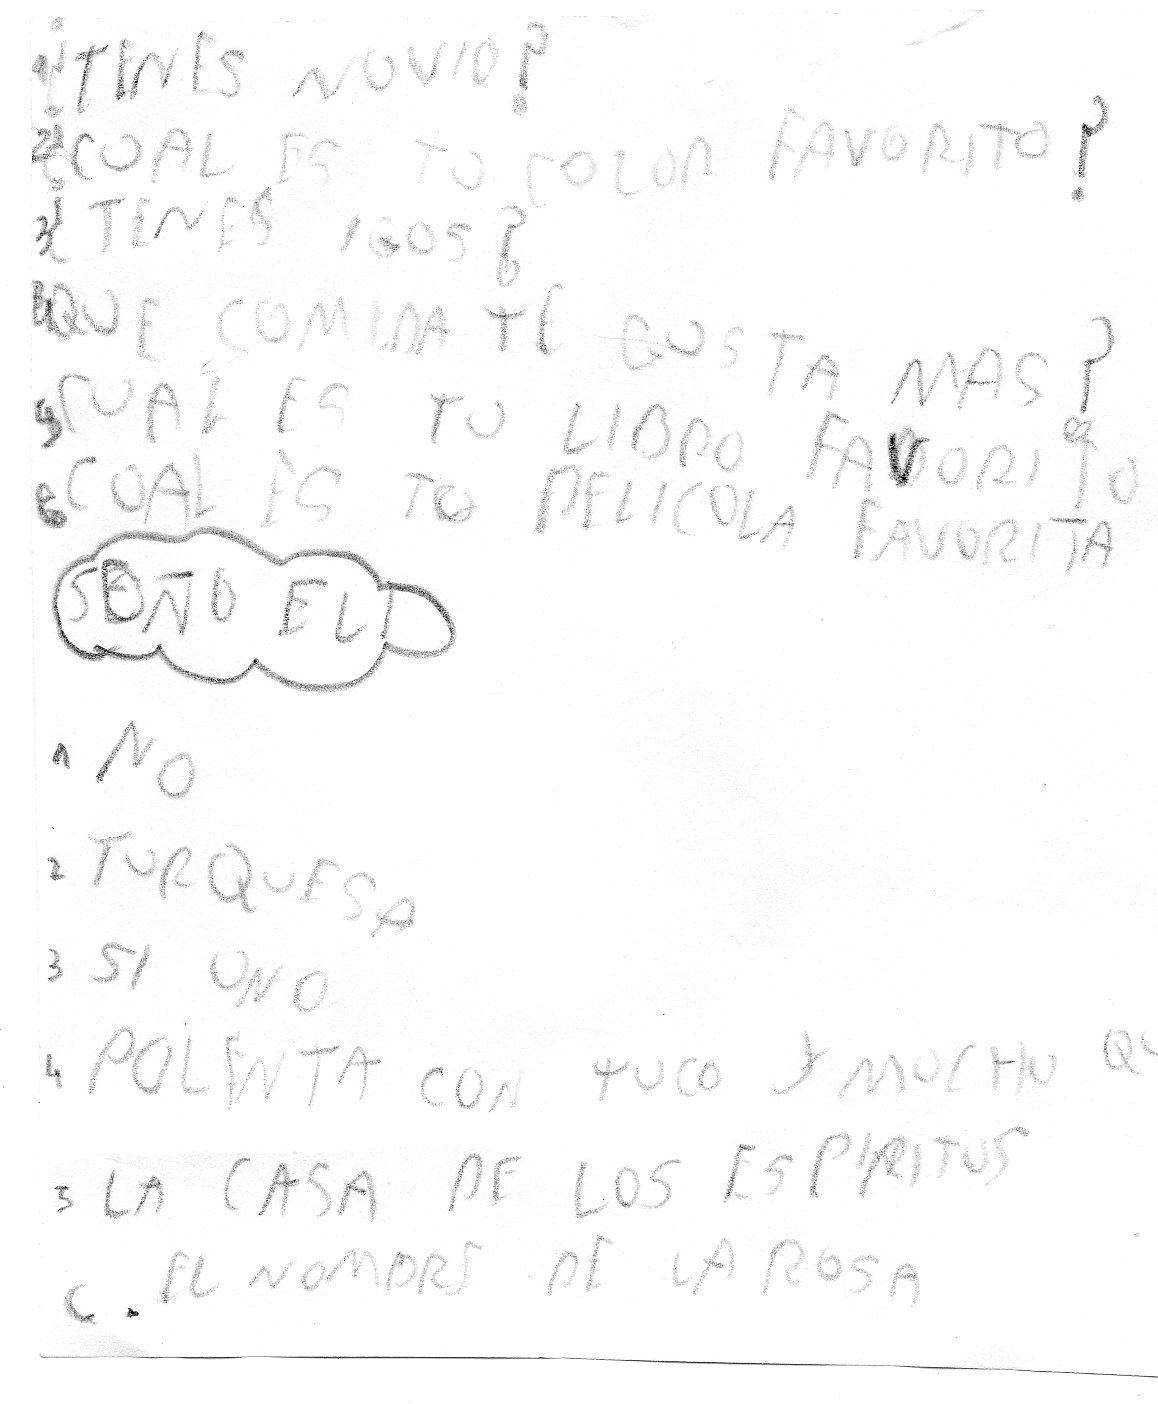 1 ¿TENES NOVIO?
2 ¿COAL ES TU COLOR FAVORITO?
3 ¿TENES IGOS?
4 QUE COMIDA TE GUSTA MAS?
5 CUAL ES TU LIBRO FAVORITO
6 COAL ES TO PELICOLA FAVORITA
SEÑO EL
1 NO
2 TURQUESA
3 SI UNO
4 POLENTA CON TUCO Y MUCHO QU
5 LA CASA DE LOS ESPIRITUS
6. EL NOMBRE DE LA ROSA